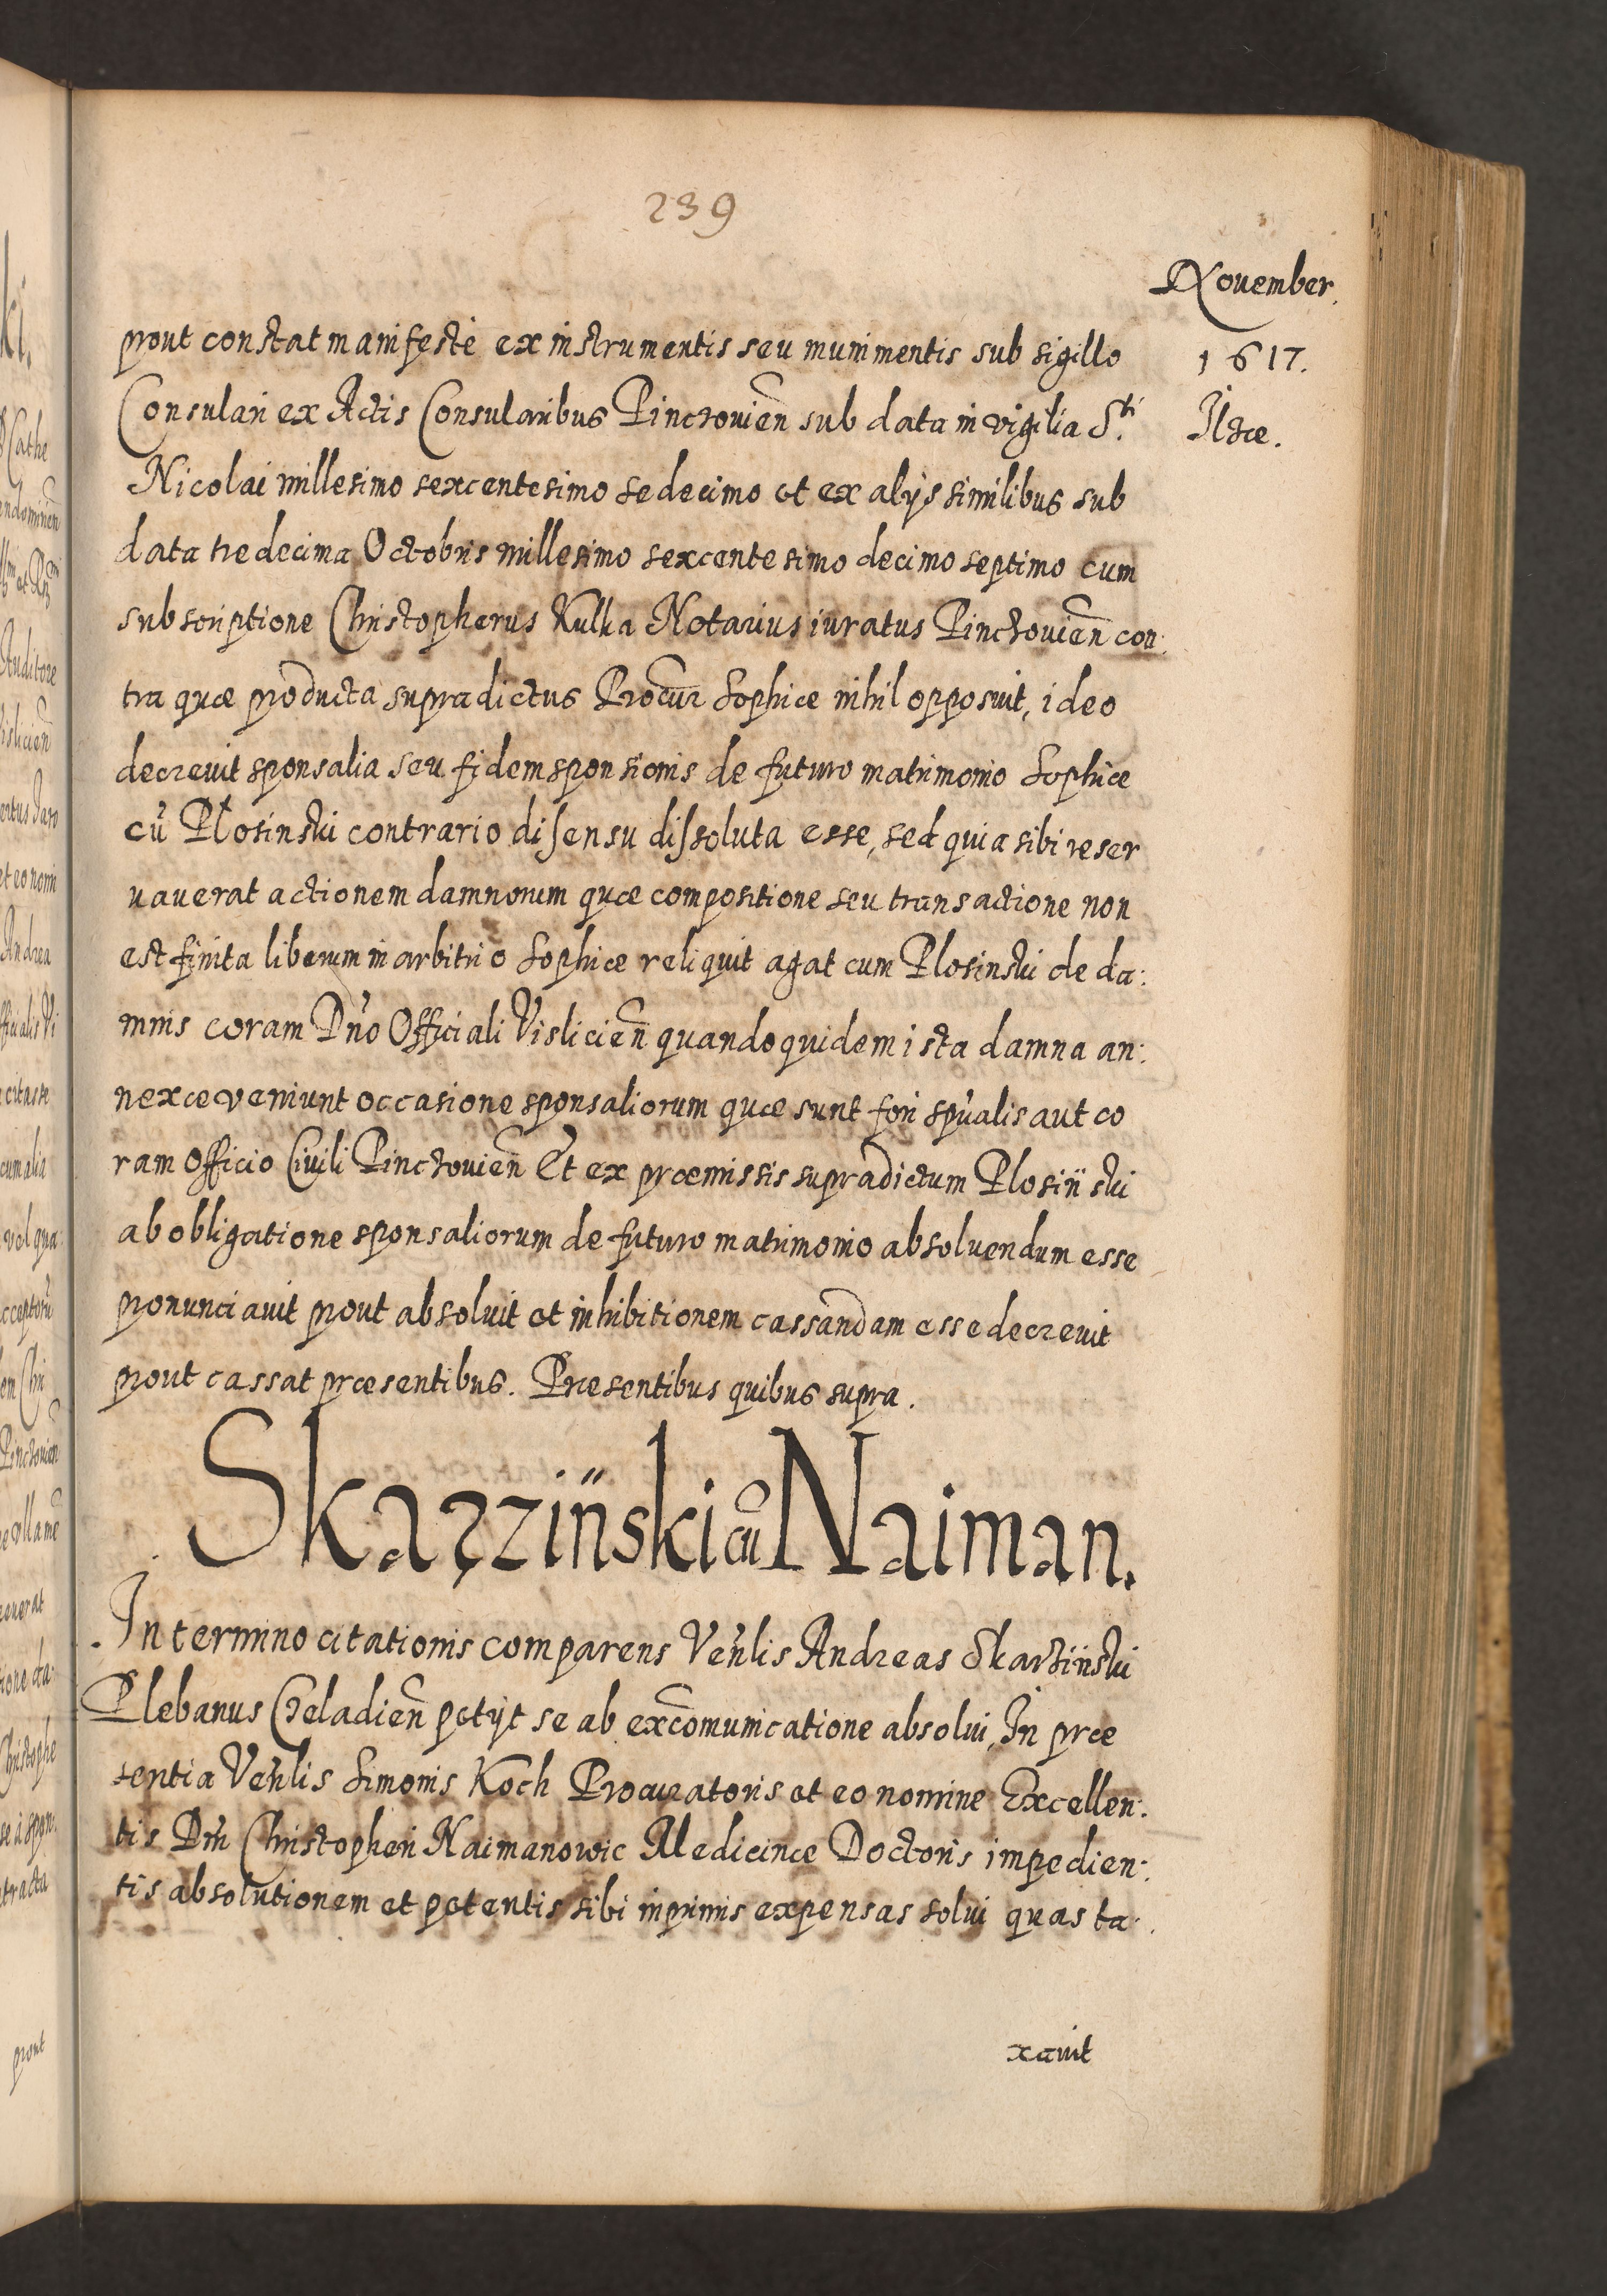 239
November.
1617.
Ilzæ.
prout constat manifestè ex instrumentis seu munimentis sub sigillo
Consulari ex Actis Consularibus Pinczouien̄ sub data in vigilia S.ti
Nicolai millesimo sexcentesimo sedecimo et ex alÿs similibus sub
data tredecima Octobris millesimo sexcentesimo decimo septimo cum
subscriptione Christopherus Kulka Notarius iuratus Pinczouien̄ con:
tra quæ producta supradictus Procur̄ Sophiæ nihil opposuit, ideo
decreuit sponsalia seu fidem sponsionis de futuro matrimonio Sophiæ
cū Plosinski contrario disensu dissoluta esse, sed quia sibi reser
uauerat actionem damnorum quæ compositione seu transactione non
est finita liberum in arbitrio Sophiæ reliquit agat cum Plosinski de da:
mnis coram Dn̄o Officiali Vislicien̄ quandoquidem ista damna an:
nexæ veniunt occasione sponsaliorum quæ sunt fori sp̄ualis aut co
ram Officio Ciuili Pinczouien̄ Et ex præmissis supradictum Plosin̈ski
ab obligatione sponsaliorum de futuro matrimonio absoluendum esse
pronunciauit prout absoluit et inhibitionem cassandam esse decreuit
prout cassat præsentibus. Præsentibus quibus supra.
Skarzin̈ski cū Naiman.
In termino citationis comparens Ven̄lis Andreas Skarzin̈ski
Plebanus Czeladien̄ petÿt se ab excōmunicatione absolui, In præ
sentia Ven̄lis Simonis Koch Procuratoris et eo nomine Excellen:
tis Dn̄i Christopheri Naimanowic Medicinæ Doctoris impedien:
tis absolutionem et petentis sibi inprimis expensas solui quas ta:
xauit